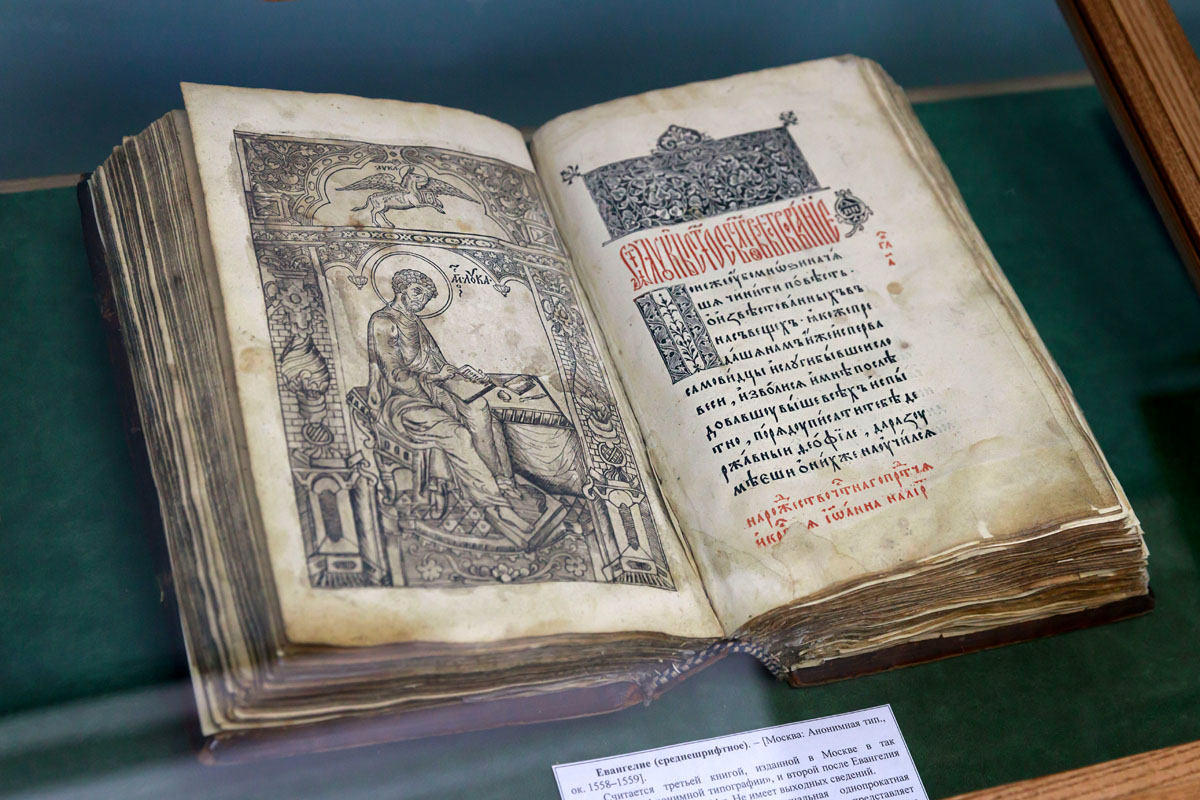 ЛУКА
ЛОУКА
Понеже оубо мнѡѕи начѧ
шѧ чинити повѣсть
о извѣствованныхъ въ
насъ вещехъ. ꙗкоже пре
даша намъ иже исперва
самовидцы и слуги бывше сло
веси, изволисѧ и мнѣ послѣ
довавшоу выше всѣхъ испы
тно, порѧдоу писати тебѣ де
ржавныи ѳеофіле, да разоу
мѣеши о нихже наоучилсѧ
на рожⷭ҇тво чⷭ҇тнаго прⷣтчѧ
и іѡанна
Евангелие (среднешрифтное). – [Москва: Анонимная тип.,
ок. 1558–1559].
Считается третьей книгой, изданной в Москве в так
типографии», и второй после Евангелия
Не имеет выходных сведений.
однопрокатная
представляет